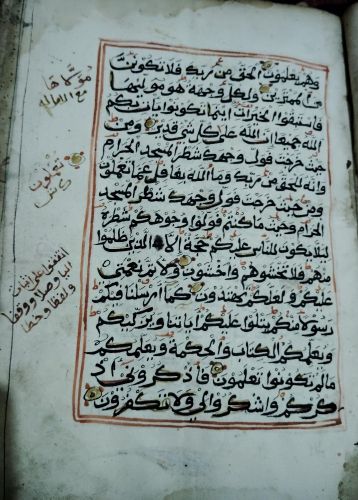 وهم يعلمون الحق من ربك فلا تكونن
من الممترين ولكل وجهة هو موليها
فاستبقوا الخيرات اينما تكونوا يات بكم
الله جميعا ان الله على كل شي قدير ومن
حيث خرجت فول وجهك شطر المسجد الحرام
وانه للحق من ربك وما الله بغافل عما تعملون
ومن حيث خرجت فول وجهك شطر المسجد
الحرام وحيث ما كنتم فولوا وجوهكم شطره
ليلا يكون للناس عليكم حجة الا الذين ظلموا
منهم فلا تخشوهم واخشوني ولاتم نعمتي
عليكم ولعلكم تهتدون كما ارسلنا فيكم
رسولا منكم يتلوا عليكم اياتنا ويزكيكم
ويعلمكم الكتاب والحكمة ويعلمكم
مالم تكونوا تعلمون فاذكروني اذ
كركم واشكروا لي ولا تكفرون
مع الاماله
اتفقوا على اثبات
اليا وصلا ووقفا
ولفظا وخطا